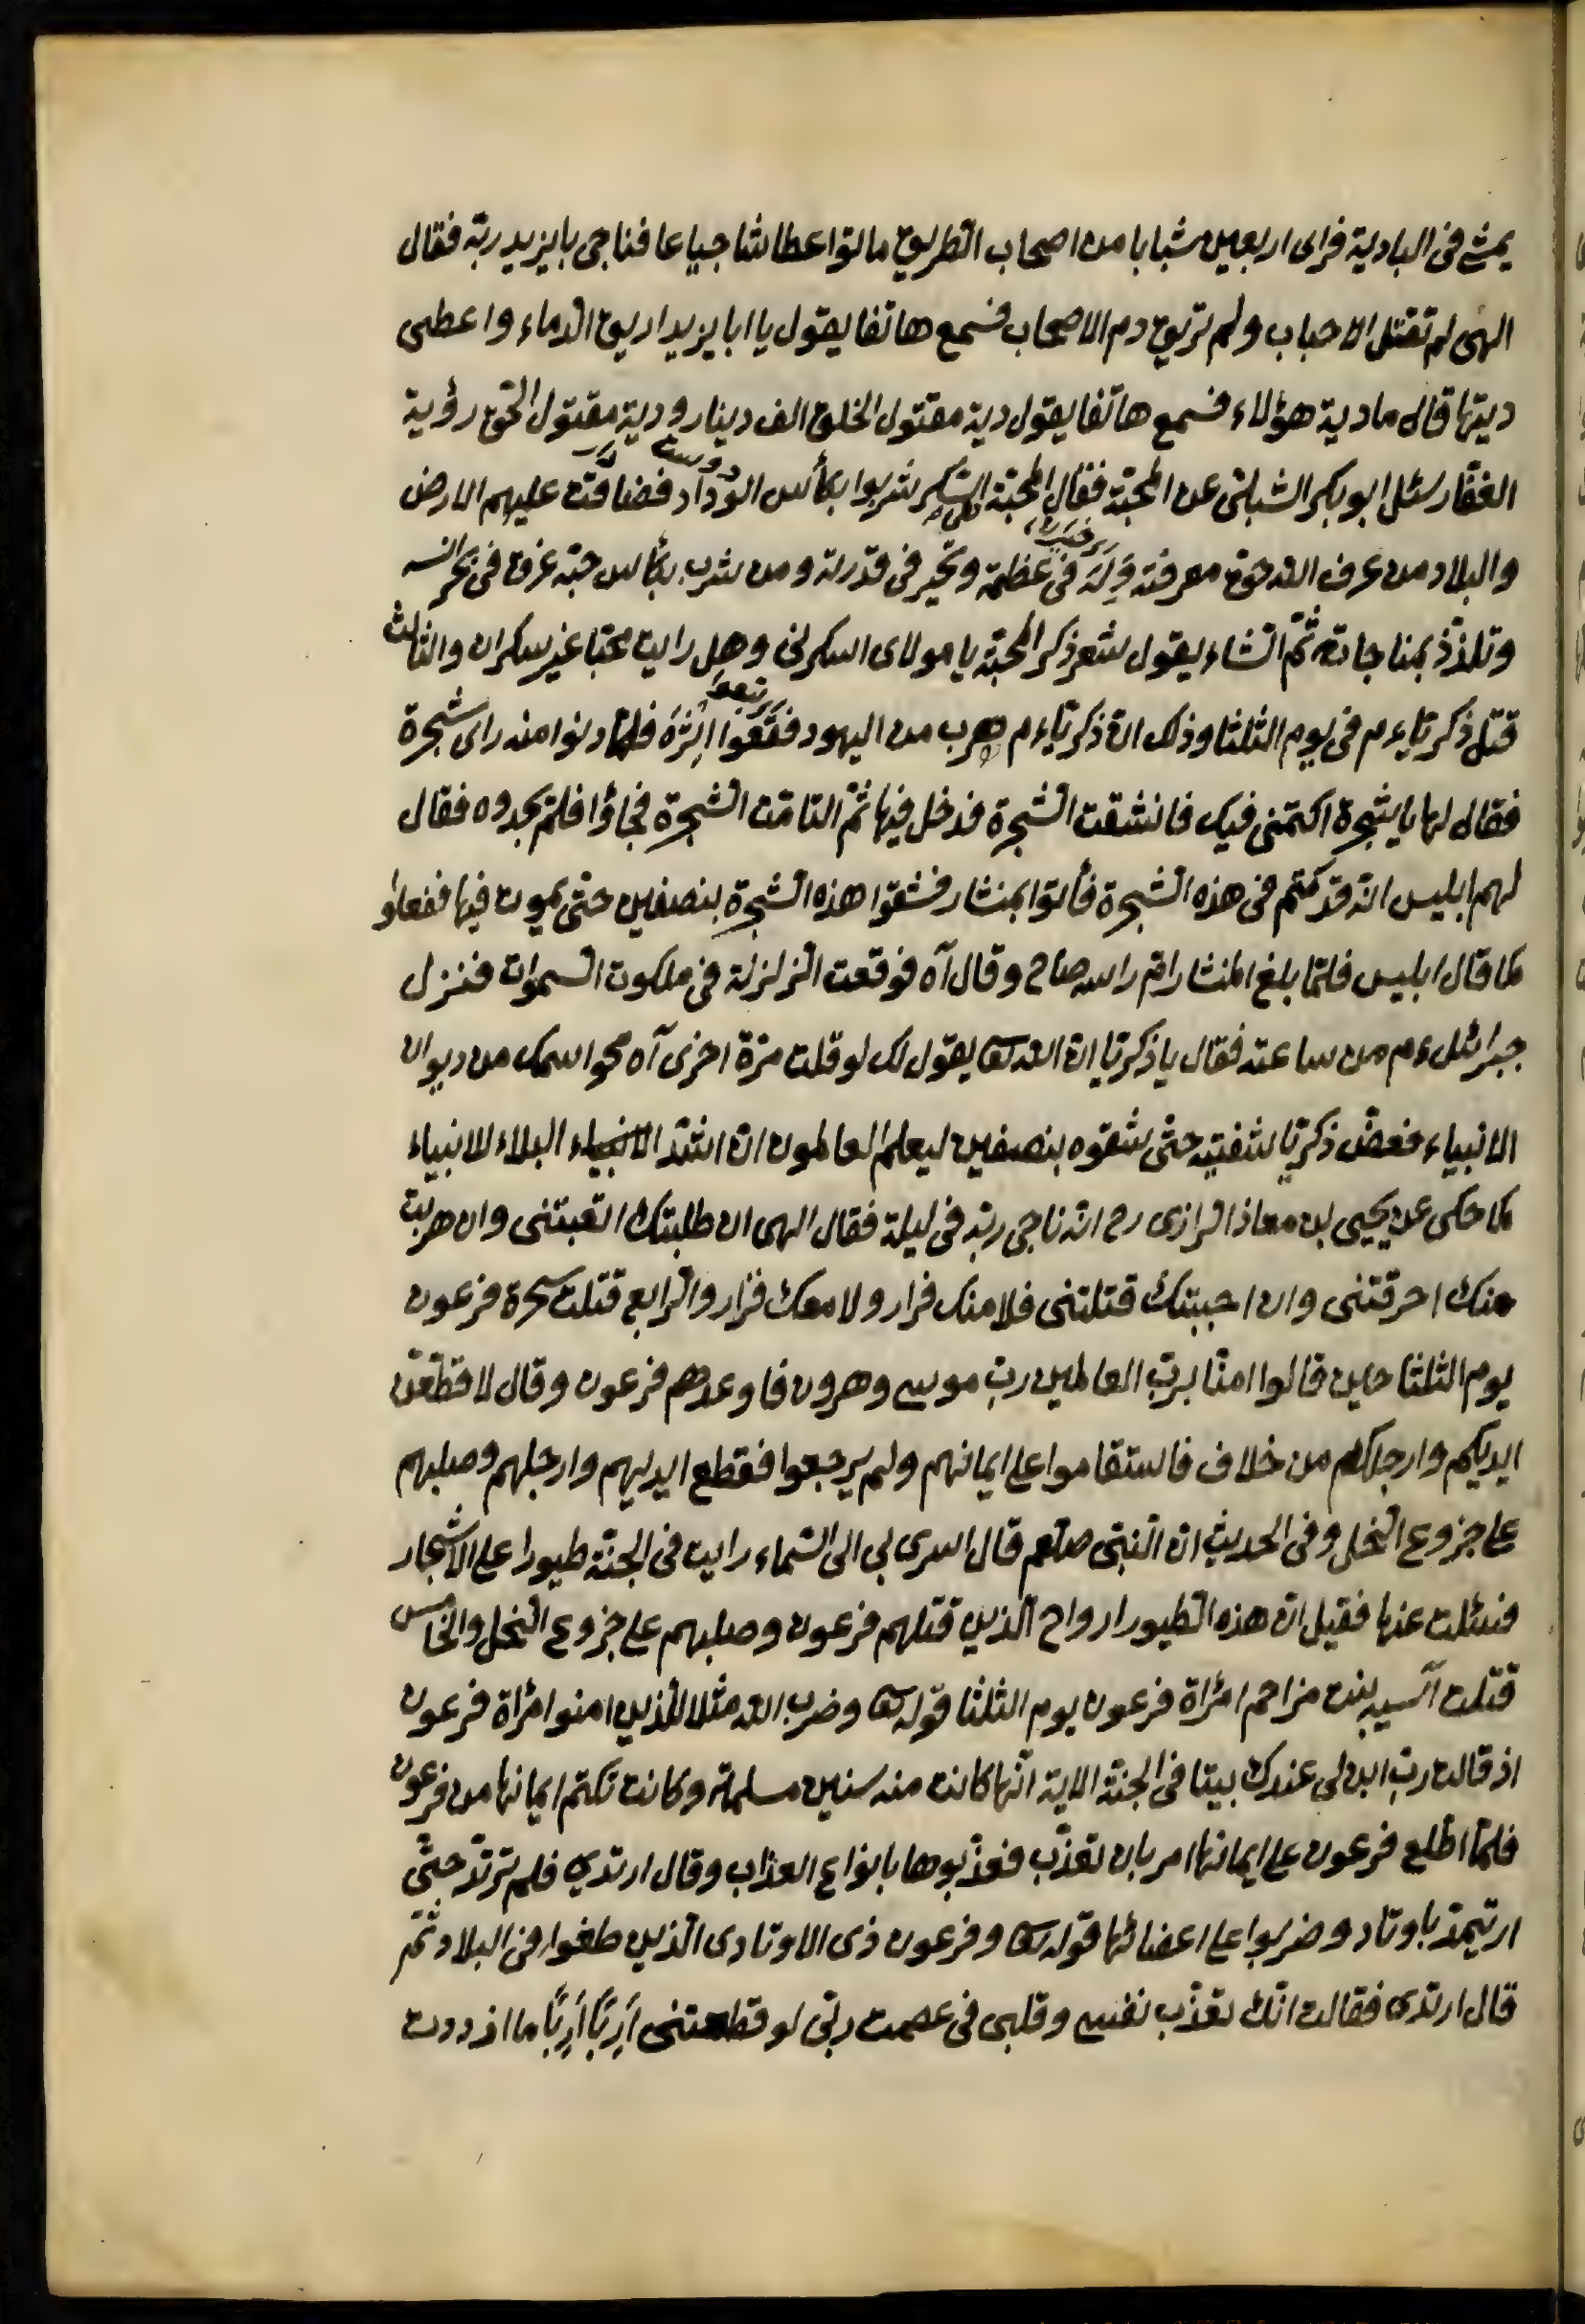 يمشى فى البادية فراى اربعين شبابا من اصحاب الطريق ماتوا عطاشا جياعا فناجى بايزيد ربّه فقال
الهى لم تقتل الاحباب ولم تريق دم الاصحاب فسمع هاتفا يقول يا ابا يزيد اريق الدماء واعطى
ديتها قال ما دية هؤلاء فسمع هاتفا يقول دية مقتول الخلق الف دينار ودية مقتول الحق رؤية
الغفّار سئل ابو بكر الشبلىّ عن المحبّة فقال المحبّة السّكر شربوا بكأس الوداد فضاقت عليهم الارض
والبلاد من عرف الله حق معرفته وَلِهَ فى عظمته وتحيّر فى قدرته ومن شرب بكأس حبّه غرق فى بحر انسه
وتلذّذ بمناجاته ثمّ انشاء يقول شعر ذكر المحبّة يا مولاى اسكرنى وهل رايت محبّا غير سكران والثالث
قتل زكريّا ءم فى يوم الثلثا وذلك انّ زكريّا ءم هرب من اليهود فقفوا اثره فلمّا دنوا منه راى شجرة
فقال لها يا شجرة اكتمنى فيك فانشقت الشّجرة فدخل فيها ثمّ التامّت الشّجرة فجاؤا فلم يجدوه فقال
لهم ابليس انّه قد كتم فى هذه الشّجرة فأتوا بمنشار فشقوا هذه الشّجرة بنصفين حتّى يموت فيها ففعلوا
كما قال ابليس فلمّا بلغ المنشار امّ راسه صاح وقال آه فوقعت الزلزلة فى ملكوت السّموات فنزل
جبرائيل ءم من ساعته فقال يا زكريّا انّ الله تعا يقول لك لو قلت مرّة اخرى آه محو اسمك من ديوان
الانبياء فعضّ زكريّا شفتيه حتّى شقّوه بنصفين ليعلم العالمون انّ اشدّ الانبياء البلاء للانبياء
كما حكى عن يحيى بن معاذ الرازى رح انّه ناجى ربّه فى ليلة فقال الهى ان طلبتك اتعبتنى وان هربت
منك احرقتنى وان احببتك قتلتنى فلا منك فرار ولا معك قرار والرابع قتلت سحرة فرعون
يوم الثلثا حين قالوا امنّا بربّ العالمين ربّ موسى وهرون فاوعدهم فرعون وقال لاقطّعنّ
ايديكم وارجلكم من خلاف فاستقاموا على ايمانهم ولم يرجعوا فقطع ايديهم وارجلهم وصلبهم
على جزوع النّخل وفى الحديث انّ النّبىّ صلعم قال اسرى بى الى السّماء رايت فى الجنّة طيورا على الاشجار
فسئلت عنها فقيل انّ هذه الطيور ارواح الّذين قتلهم فرعون وصلبهم على جزوع النّخل والخامس
قتلت آسيه بنت مزاحم امرأة فرعون يوم الثلثا قوله تعا وضرب الله مثلا للّذين امنوا امرأة فرعون
اذ قالت ربّ ابن لى عندك بيتا فى الجنّة الاية انّها كانت منه سنين مسلمة وكانت تكتم ايمانها من فرعون
فلمّا اطّلع فرعون على ايمانها امر بان تعذّب فعذّبوها بانواع العذاب وقال ارتدى فلم ترتدّ حتّى
باوتاد وضربوا على اعضائها قوله تعا وفرعون ذى الاوتادى الّذين طغوا فى البلاد ثمّ
قال ارتدى فقالت انّك تعذّب نفسى وقلبى فى عصمت ربّى لو قطعتنى اِرَبًا اِرَبًا ما ازددت